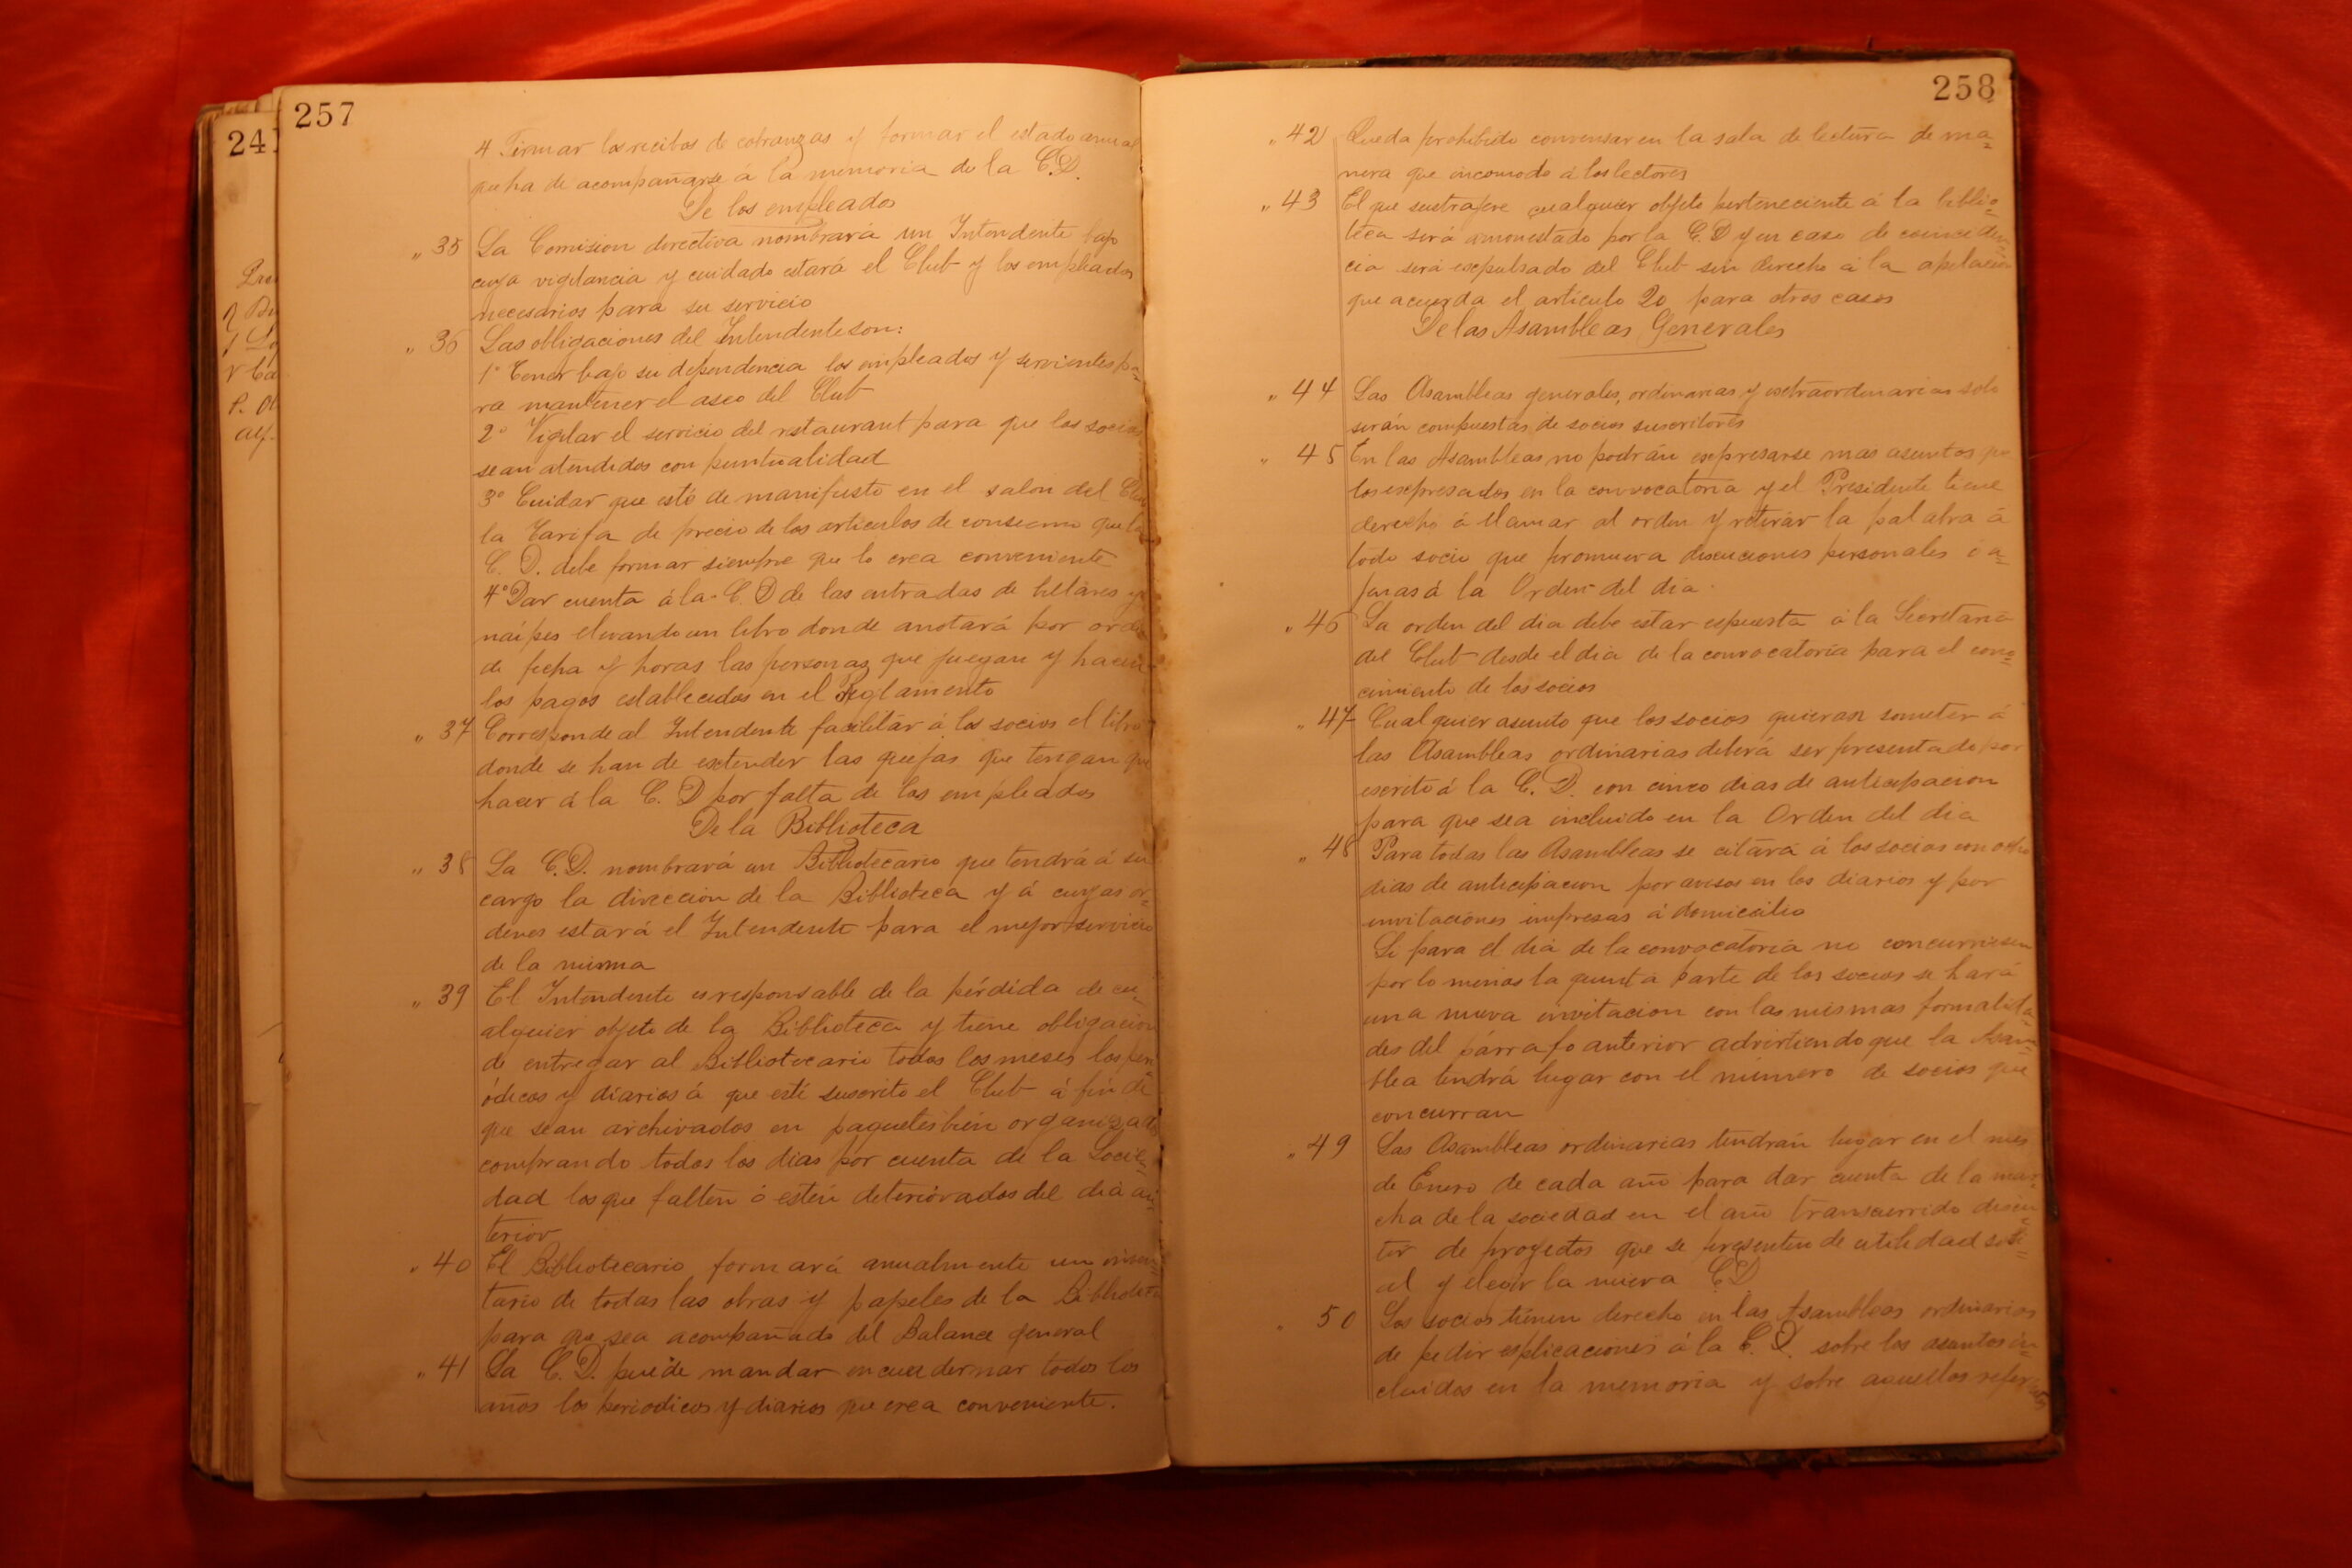 257
4 Firmar los recibos de cobranzas y formar el estado anual
que ha de acompañarse á la memoria de la C.D.
De los empleados
„ 35 La Comision directiva nombrará un Intendente bajo
cuya vigilancia y cuidado estará el Club y los empleados
necesarios para su servicio
„ 36 Las obligaciones del Intendente son:
1° Tener bajo su dependencia los empleados y sirvientes pa=
ra mantener el aseo del Club
2° Vigilar el servicio del restaurant para que los socios
sean atendidos con puntualidad
3° Cuidar que esté de manifiesto en el salon del Club
la Tarifa de precio de los articulos de consumo que la
C. D. debe formar siempre que lo crea conveniente
4° Dar cuenta á la C. D de las entradas de billares y
naípes llevando un libro donde anotará por orden
de fecha y horas las personas que juegan y hacen
los pagos establecidos en el Reglamento
„ 37 Corresponde al Intendente facilitar á los socios el libro
donde se han de extender las quejas que tengan que
hacer á la C. D por falta de los empleados
De la Biblioteca
„ 38 La C.D. nombrará un Bibliotecario que tendrá á su
cargo la direccion de la Biblioteca y á cuyas or=
denes estará el Intendente para el mejor servicio
de la misma
„ 39 El Intendente es responsable de la pérdida de cu=
alquier objeto de la Biblioteca y tiene obligacion
de entregar al Bibliotecario todos los meses los peri=
ódicos y diarios á que esté suscrito el Club á fin de
que sean archivados en paquetes bien organizados
comprando todos los dias por cuenta de la Socie=
dad los que falten ó estén deteriorados del dia an=
terior
„ 40 El Bibliotecario formará anualmente un inven=
tario de todas las obras y papeles de la Biblioteca
para que sea acompañado del Balance general
„ 41 La C. D. puede mandar encuadernar todos los
años los periodicos y diarios que crea conveniente.
258
„ 42 Queda prohibido conversar en la sala de lectura de ma=
nera que incomode á los lectores
„ 43 El que sustrajere cualquier objeto perteneciente á la biblio=
teca será amonestado por la C. D y en caso de
cia será expulsado del Club sin derecho á la apelacion
que acuerda el artículo 20 para otros casos
De las Asambleas Generales
„ 44 Las Asambleas generales, ordinarias y extraordinarias solo
serán compuestas de socios suscritores
„ 45 En las Asambleas no podrán expresarse mas asuntos que
los expresados en la convocatoria y el Presidente tiene
derecho á llamar al orden y retirar la palabra á
todo socio que promueva discuciones personales ó a=
jenas á la Orden del dia.
„ 46 La orden del dia debe estar espuesta á la Secretaria
del Club desde el dia de la convocatoria para el cono=
cimiento de los socios
„ 47 Cualquier asunto que los socios quieran someter á
las Asambleas ordinarias deberá ser presentado por
escrito á la C. D. con cinco dias de anticipacion
para que sea incluido en la Orden del dia
„ 48 Para todas las Asambleas se citará á los socios con ocho
dias de anticipacion por avisos en los diarios y por
invitaciones impresas á domicilio
Si para el dia de la convocatoria no concurriesen
por lo menos la quinta parte de los socios se hará
una nueva invitacion con las mismas formalida=
des del párrafo anterior advirtiendo que la Asam=
blea tendrá lugar con el número de socios que
concurran
„ 49 Las Asambleas ordinarias tendrán lugar en el mes
de Enero de cada año para dar cuenta de la mar=
cha de la sociedad en el año transcurrido discu=
tir de proyectos que se presenten de utilidad soci=
al y elegir la nueva C.D.
„ 50 Los socios tienen derecho en las Asambleas ordinarias
de pedir esplicaciones á la C. D. sobre los asuntos in=
cluidos en la memoria y sobre aquellos